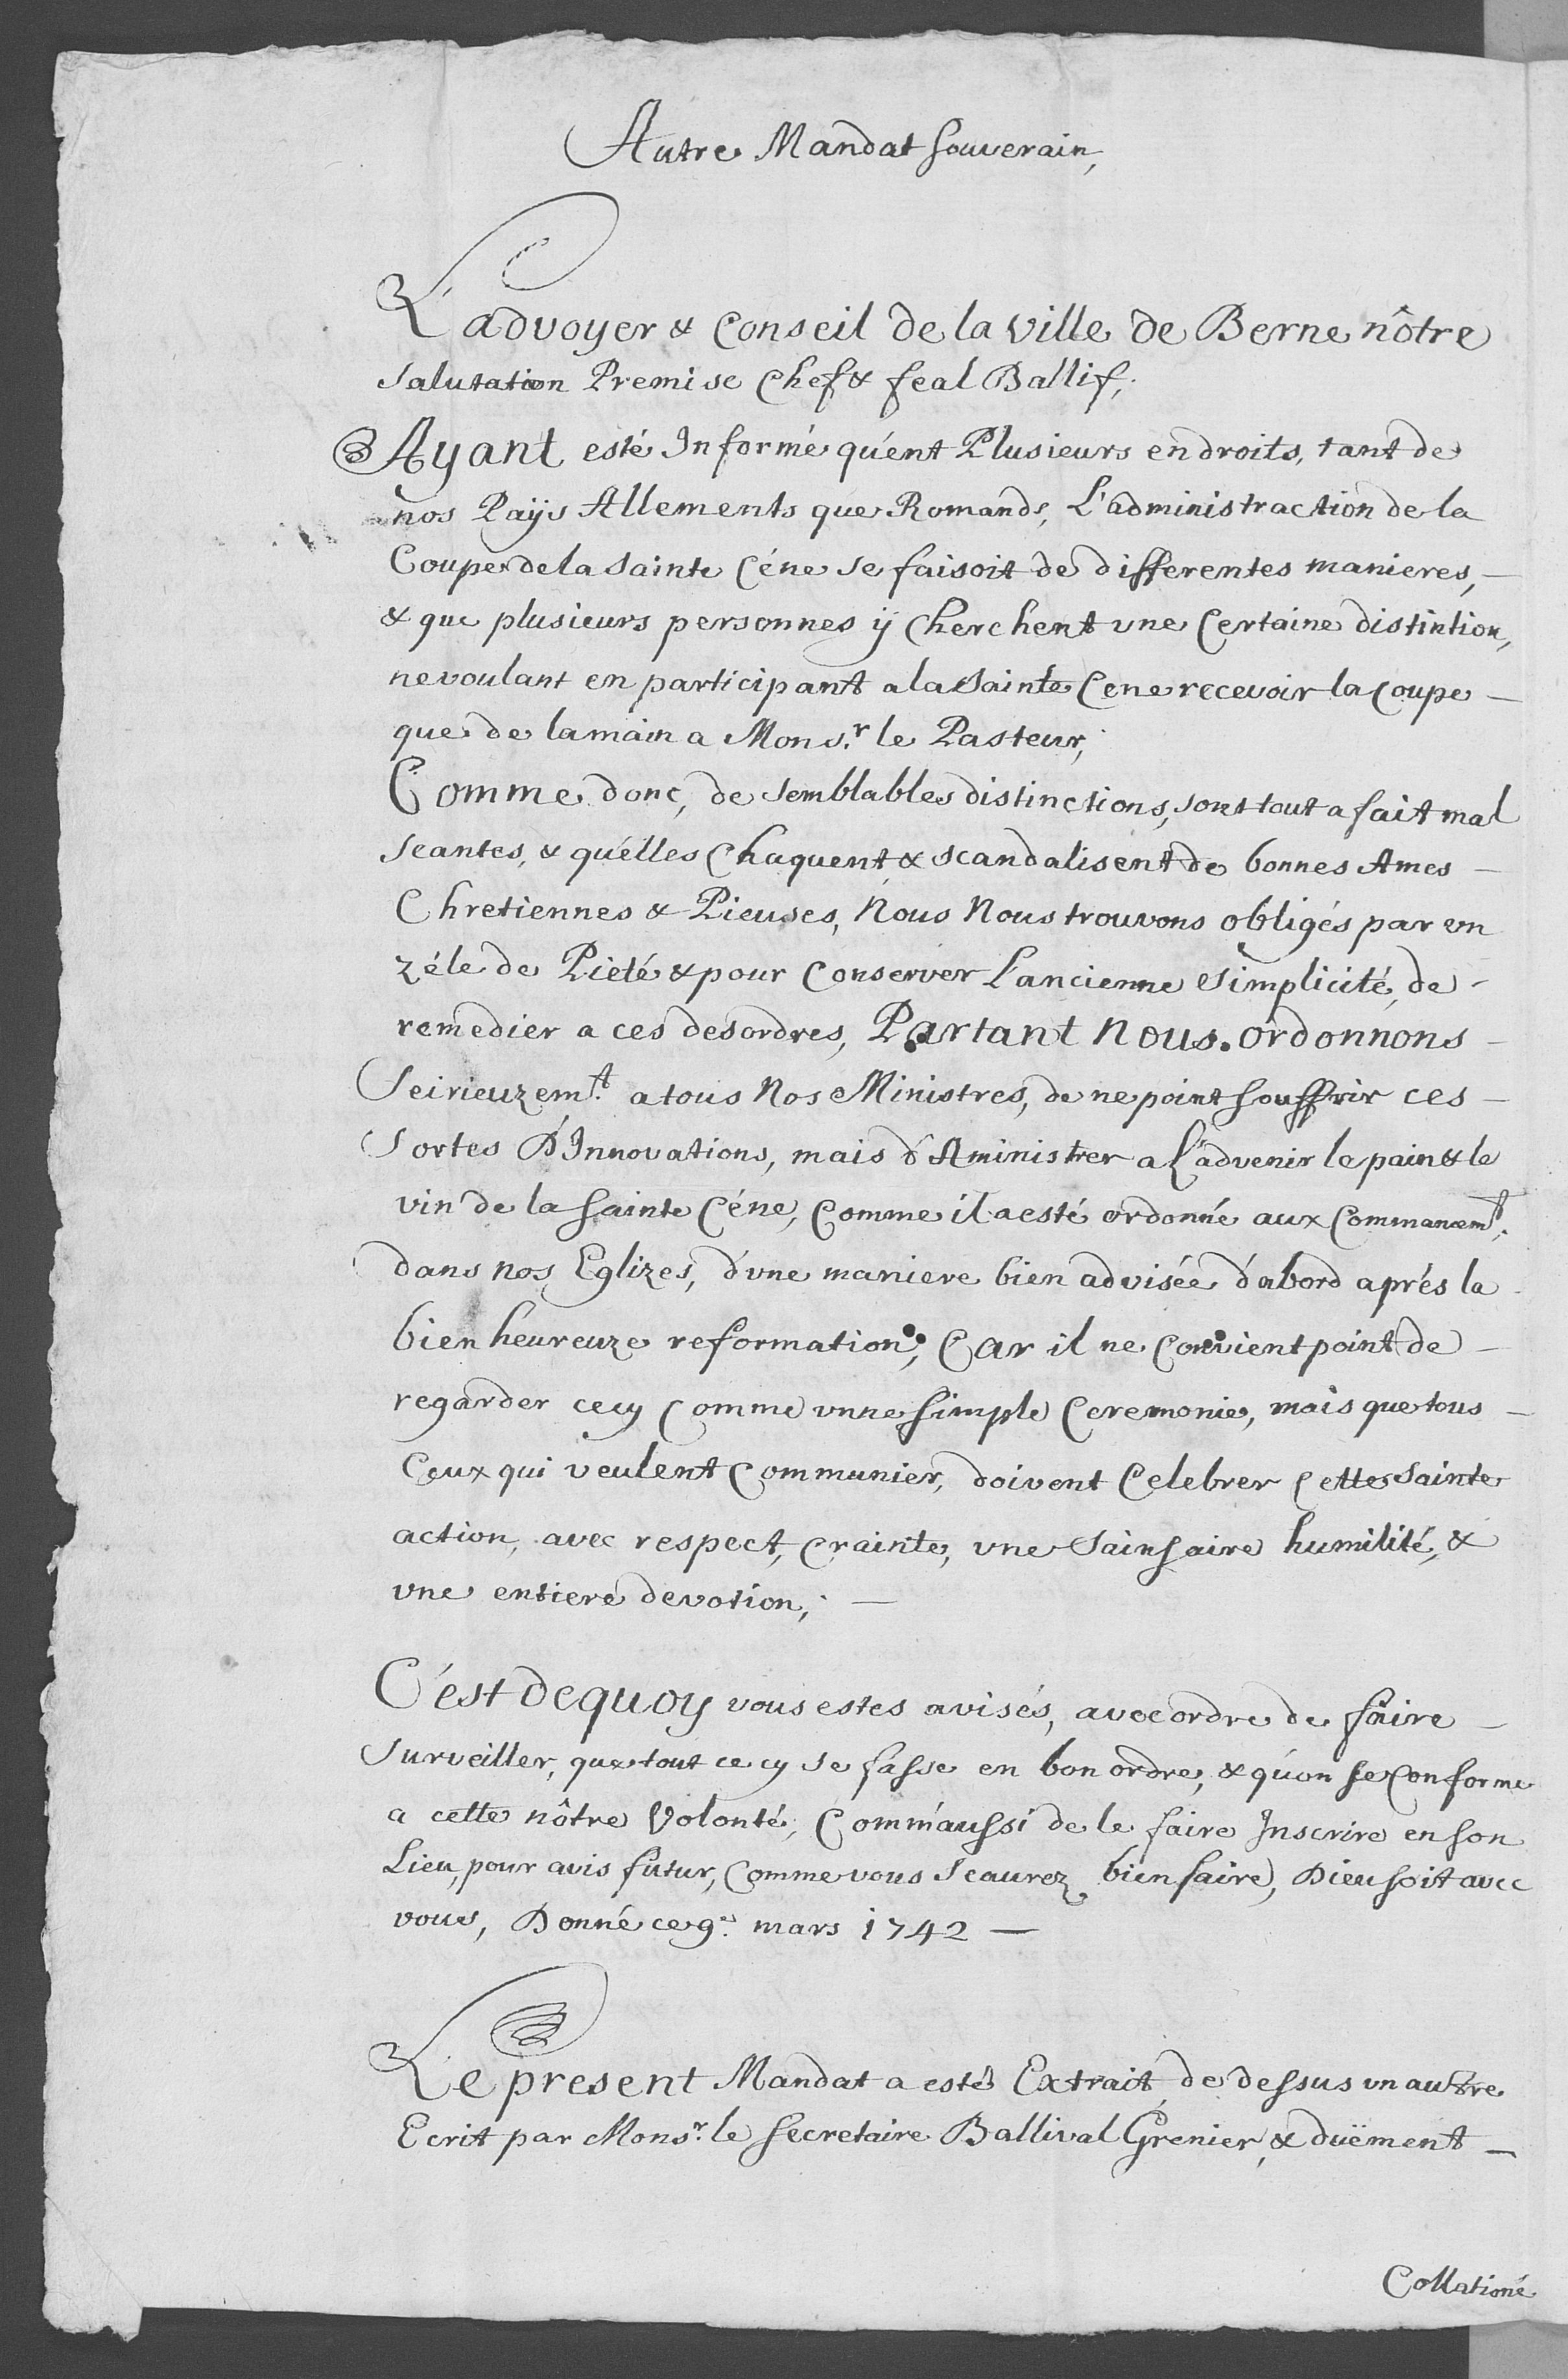 Autre Mandat Souverain,
L'advoyer & Conseil de la Ville de Berne nôtre
Salutation Premise Chef & feal Ballif;
Ayant esté Informé qu'ent Plusieurs endroits, tant de
nos Païjs Allements que Romands, L'administraction de la
Coupe de la Sainte Céne se faisoit de differentes manieres, —
& que plusieurs personnes ÿ Cherchent une Certaine distintion,
ne voulant en participant a la Sainte Cene recevoir la Coupe —
que de la main a Mons.r le Pasteur;
Comme donc, de Semblables distinctions, sont tout a fait mal
Seantes, & qu'elles Chaquent & scandalisent de bonnes Ames —
Chretiennes & Pieuses, Nous Nous trouvons obligés par un
zéle de Pieté & pour Conserver L'ancienne Simplicité, de -
remedier a ces desordres, Partant Nous. ordonnons —
Seirieuzem.t a tous Nos Ministres, de ne point Souffrir ces —
Sortes D'Innovations, mais d'Aministrer a L'advenir le pain & le
vin de la Sainte Céne, Comme il a esté ordonné aux Commancem.t
dans nos Eglizes, d'une maniere bien advisée d'abord aprés la
bien heureuze reformation; Car il ne Convient point de —
regarder cecy Comme unne Simple Ceremonie, mais que tous —
Ceux qui veulent Communier, doivent Celebrer Cette Sainte
action, avec respect, Crainte, une Sainsaire humilité, &
une entiere devotion; —
C'est dequoy vous estes avisés, avec ordre de faire —
Surveiller, que tout cecy Se fasse en bon ordre, & qu'on se Conforme
a cette nôtre Volonté, Comm'aussi de le faire Inscrire en Son
Lieu, pour avis futur, Comme vous Scaurez bien faire, Dieu Soit avec
vous, Donné ce 9e. mars 1742 —
Le present Mandat a esté Extrait de dessus un autre
Ecrit par Mons.r le Secretaire Ballival Grenier, & duëment —
Collationé